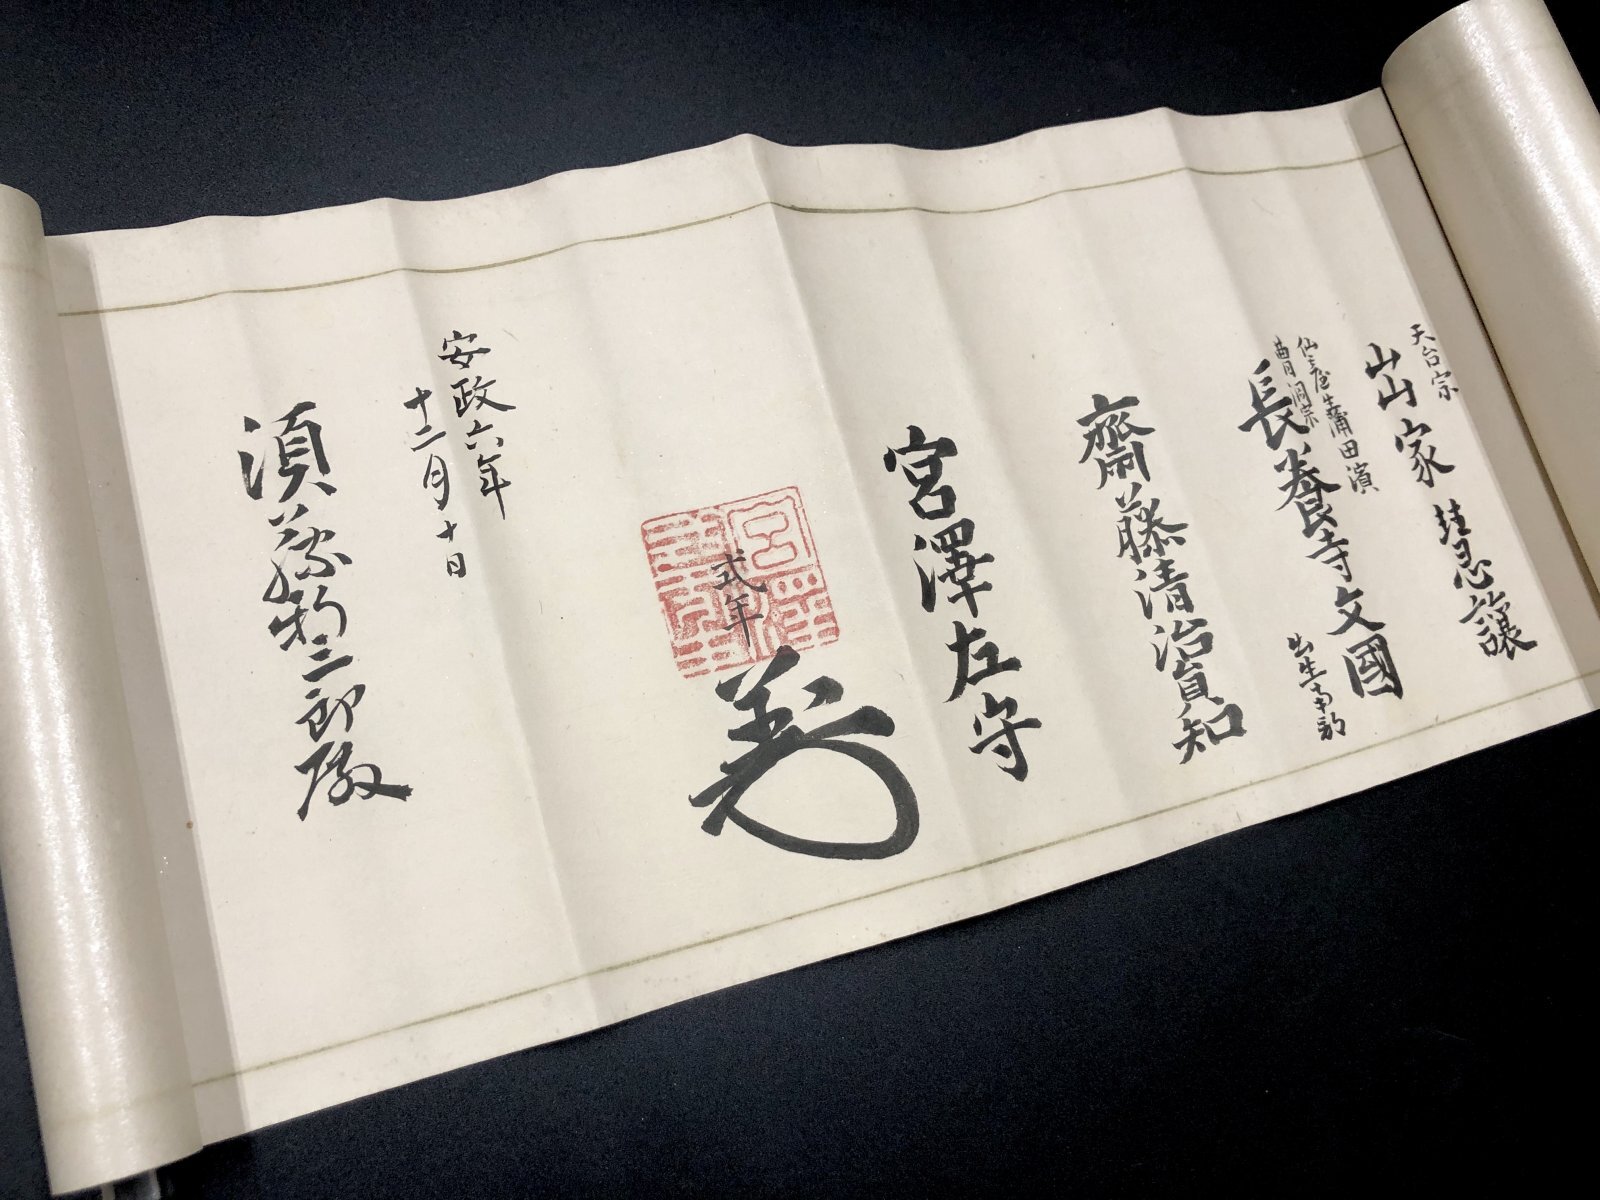 天台宗
山家 慧譲
仙臺蒲田濱
曹洞宗
長養寺文國
出生南部
齋藤清治貞知
宮澤左守
式年
安政六年
十二月十日
須藤利三郎殿